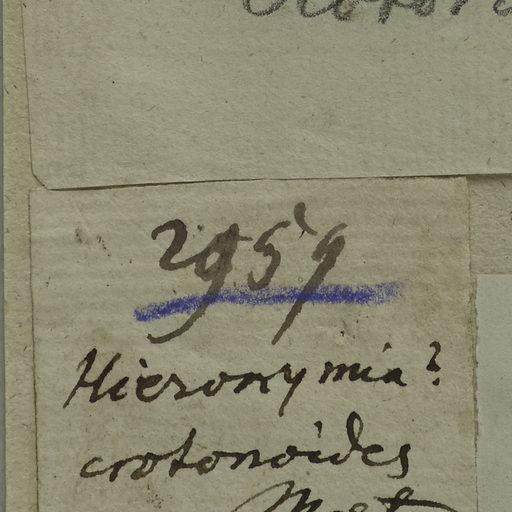 2959
Hieronymia?
crotonoides